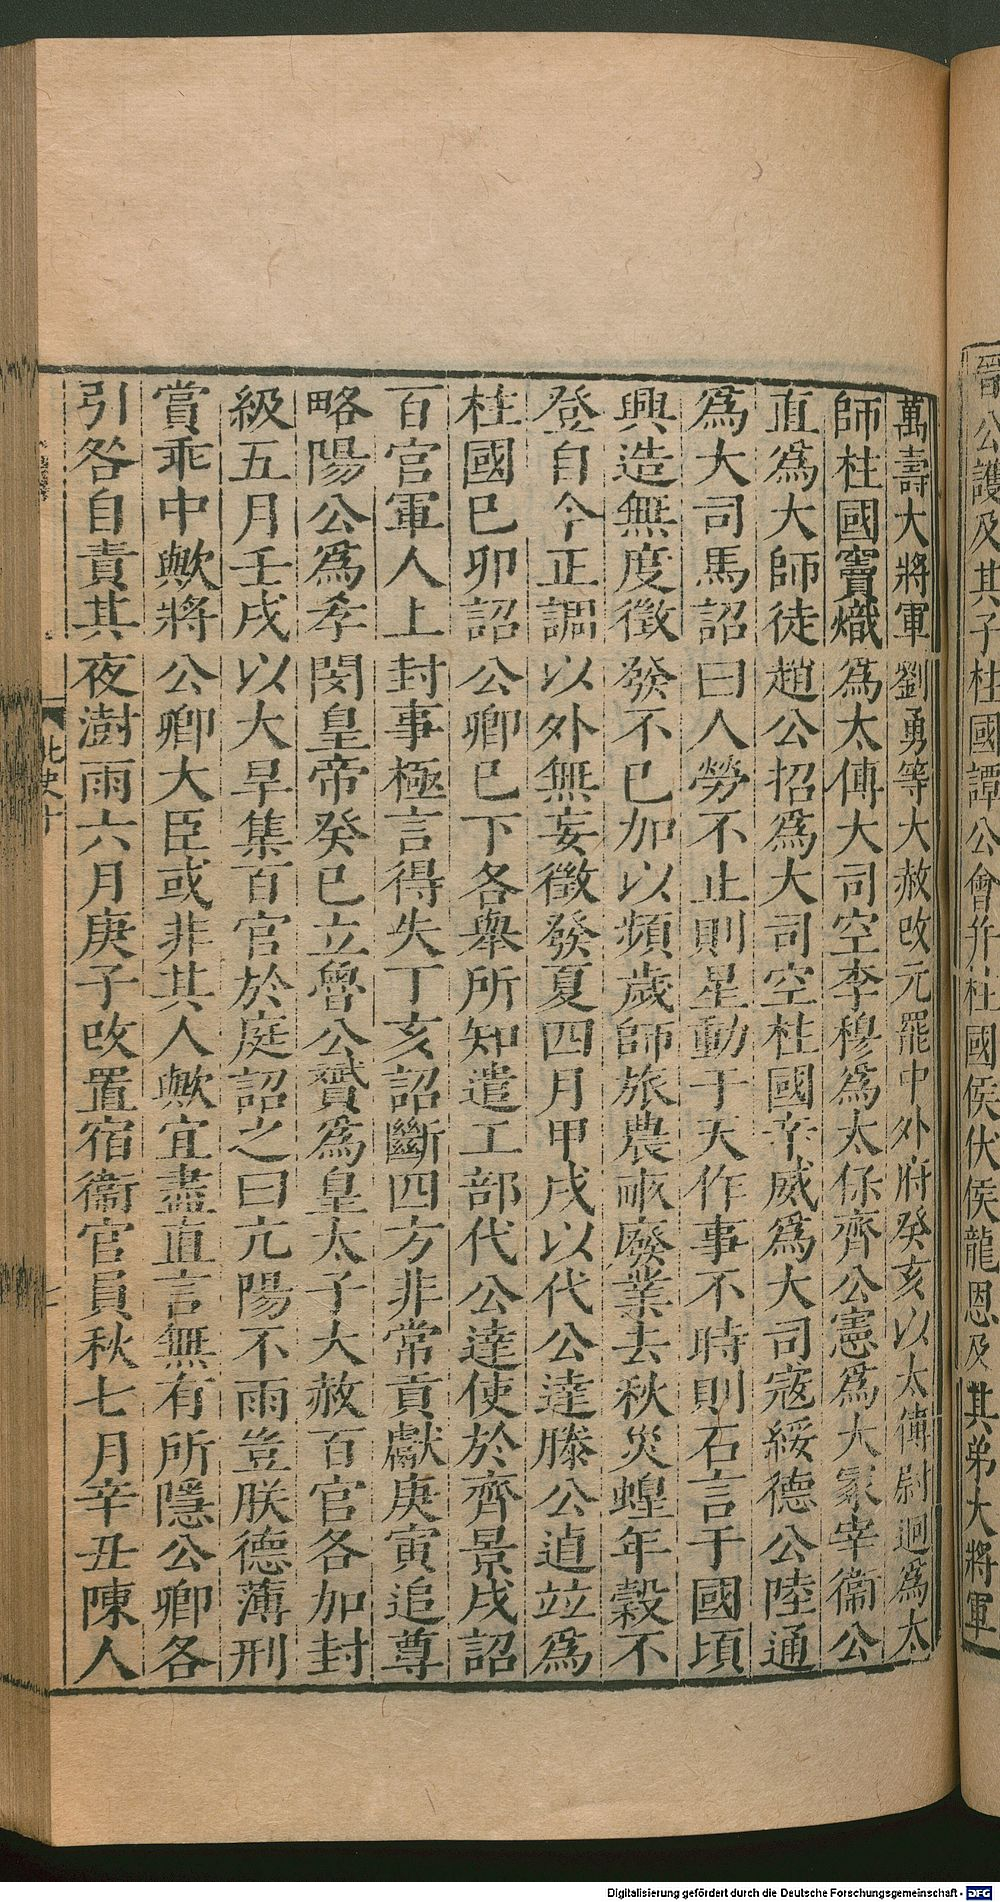 晉公護及其子柱國譚公會并柱國侯伏侯龍恩及其弟大將軍
萬壽大將軍劉勇等大赦改元罷中外府癸亥以太傅尉迥爲太
師柱國竇熾爲太傅大司空李穆爲太保齊公憲爲大冢宰衞公
直爲大師徒趙公招爲大司空柱國辛威爲大司寇綏德公陸通
爲大司馬詔曰人勞不止則星動于天作事不時則石言于國頃
興造無度徵發不已加以頻歲師旅農畝廢業去秋災蝗年穀不
登自今正調以外無妄徵發夏四月甲戌以代公達滕公逌竝爲
柱國巳卯詔公卿巳下各舉所知遣工部代公達使於齊景戌詔
百官軍人上封事極言得失丁亥詔斷四方非常貢獻庚寅追尊
略陽公爲孝閔皇帝癸巳立魯公贇爲皇太子大赦百官各加封
級五月壬戌以大旱集百官於庭詔之曰亢陽不雨豈朕德薄刑
賞乖中歟將公卿大臣或非其人歟宜盡直言無有所隱公卿各
引咎自責其夜澍雨六月庚子改置宿衞官員秋七月辛丑陳人
北史十
Digitalisierung gefördert durch die Deutsche Forschungsgemeinschaft - DFG